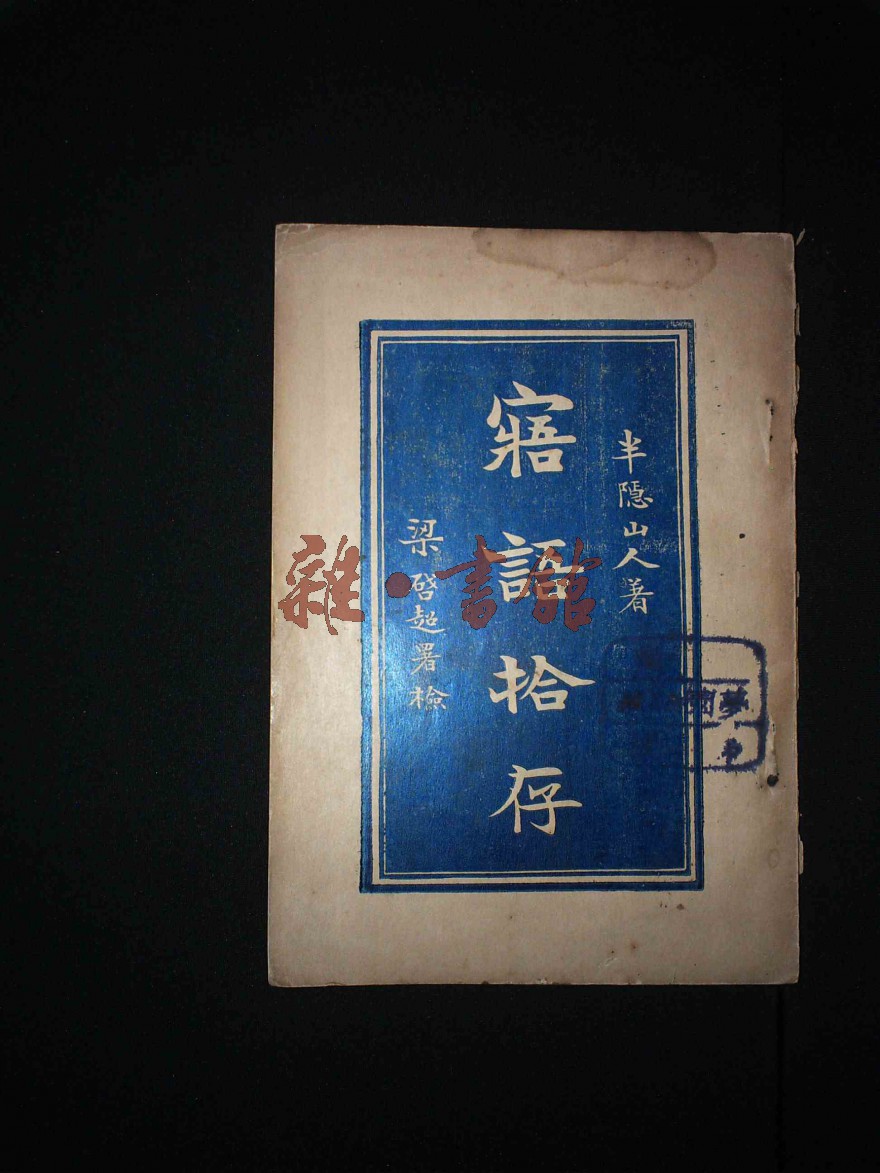 半隱山人著
寤語拾存
梁啓超署檢
雜·書館